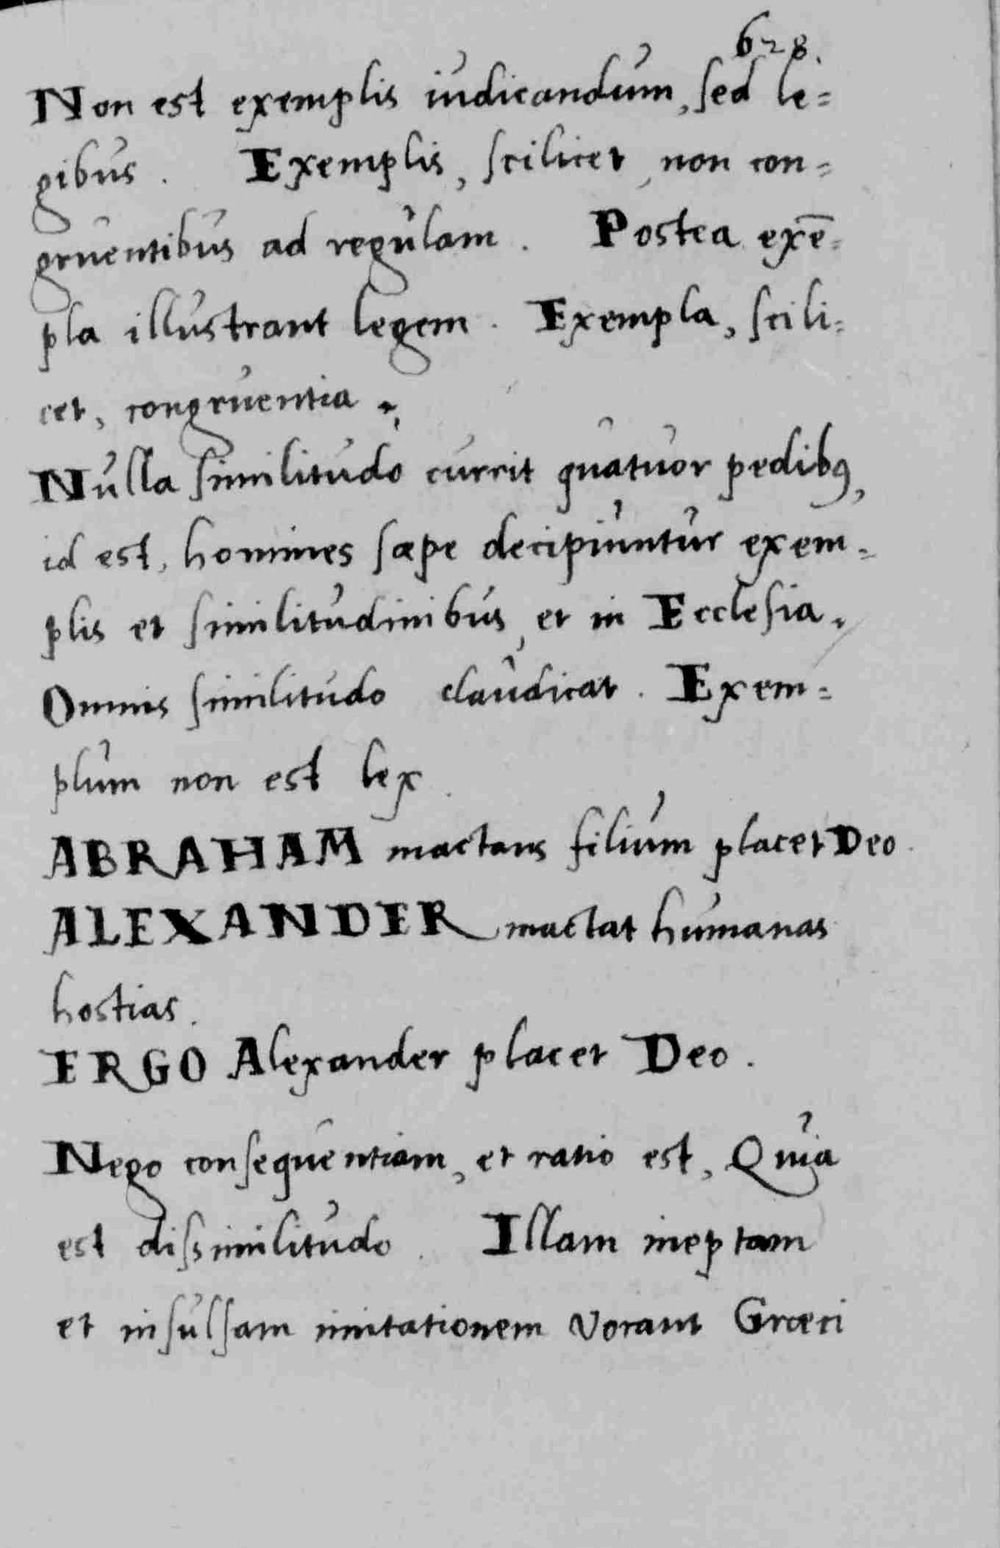 628.
Non est exemplis iudicandum, sed le=
gibus. Exemplis, scilicet, non con=
gruentibus ad regulam. Postea exē=
pla illustrant legem. Exempla, scili=
cet, congruentia.
Nulla similitudo currit quatuor pedibꝰ,
id est, homines sæpe decipiuntur exem=
plis et similitudinibus, et in Ecclesia.
Omnis similitudo claudicat. Exem=
plum non est lex.
ABRAHAM mactans filium placet Deo.
ALEXANDER mactat humanas
hostias.
ERGO Alexander placet Deo.
Nego consequentiam, et ratio est, Quia
est dissimilitudo. Illam ineptam
et insulsam imitationem vocant Græci